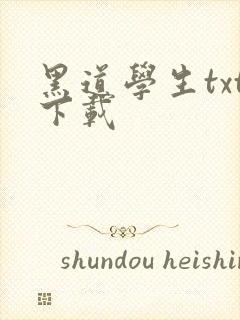 黑道學生txt
下載
shundou heishin